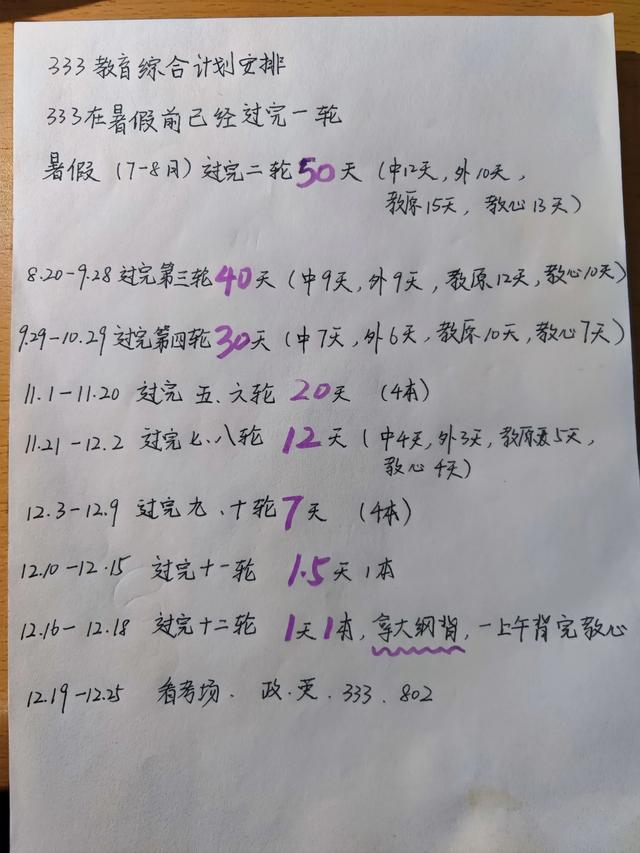 333教育综合计划安排
333在暑假前已经过完一轮
暑假（7-8月）过完二轮50天（中12天,外10天,
教原15天, 教心13天）
8.20-9.28过完第三轮40天（中9天,外9天,教原12天,教心10天）
9.29-10.29过完第四轮30天（中7天,外6天,教原10天,教心7天）
11.1-11.20 过完 五、六轮 20天 （4本）
11.21-12.2 过完七、八轮 12天（中4天,外3天,教原5天,
教心 4天）
12.3-12.9 过完九、十轮7天 （4本）
12.10-12.15 过完十一轮 1.5天1本
12.16-12.18 过完十二轮 1天1本,拿大纲背,一上午背完教心
12.19-12.25 看考场. 政.英.333.802